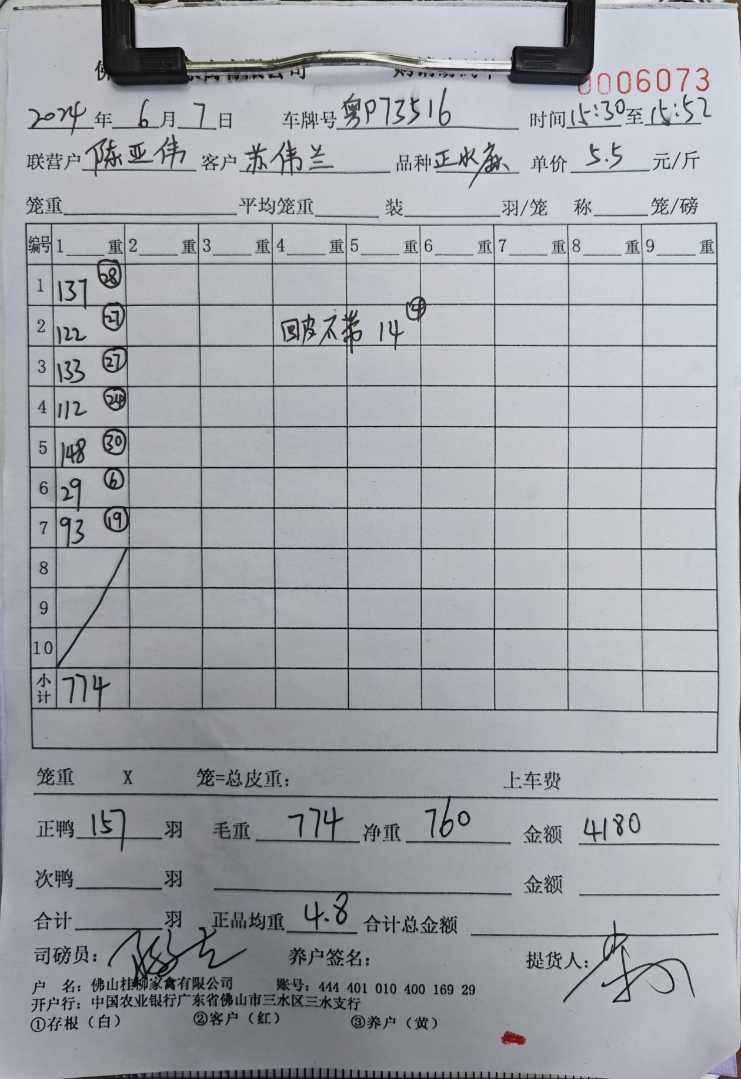 0006073
2024年6月7日 车牌号粤P73516 时间15:30至15:52
联营户陈亚伟 客户苏伟兰 品种正水麻 单价5.5元/斤
笼重 平均笼重 装 羽/笼 称 笼/磅
编号 1 重 2 重 3 重 4 重 5 重 6 重 7 重 8 重 9 重
1 137 28
2 122 27 回皮不带 14
3 133 27
4 112 24
5 148 30
6 29 6
7 93 19
8
9
10
小计 774
笼重 X 笼=总皮重: 上车费
正鸭157羽 毛重774净重760 金额4180
次鸭 羽 金额
合计 羽 正品均重4.8合计总金额
司磅员: 养户签名: 提货人:
户 名: 佛山桂柳家禽有限公司 账号: 444 401 010 400 169 29
开户行: 中国农业银行广东省佛山市三水区三水支行
①存根(白) ②客户(红) ③养户(黄)